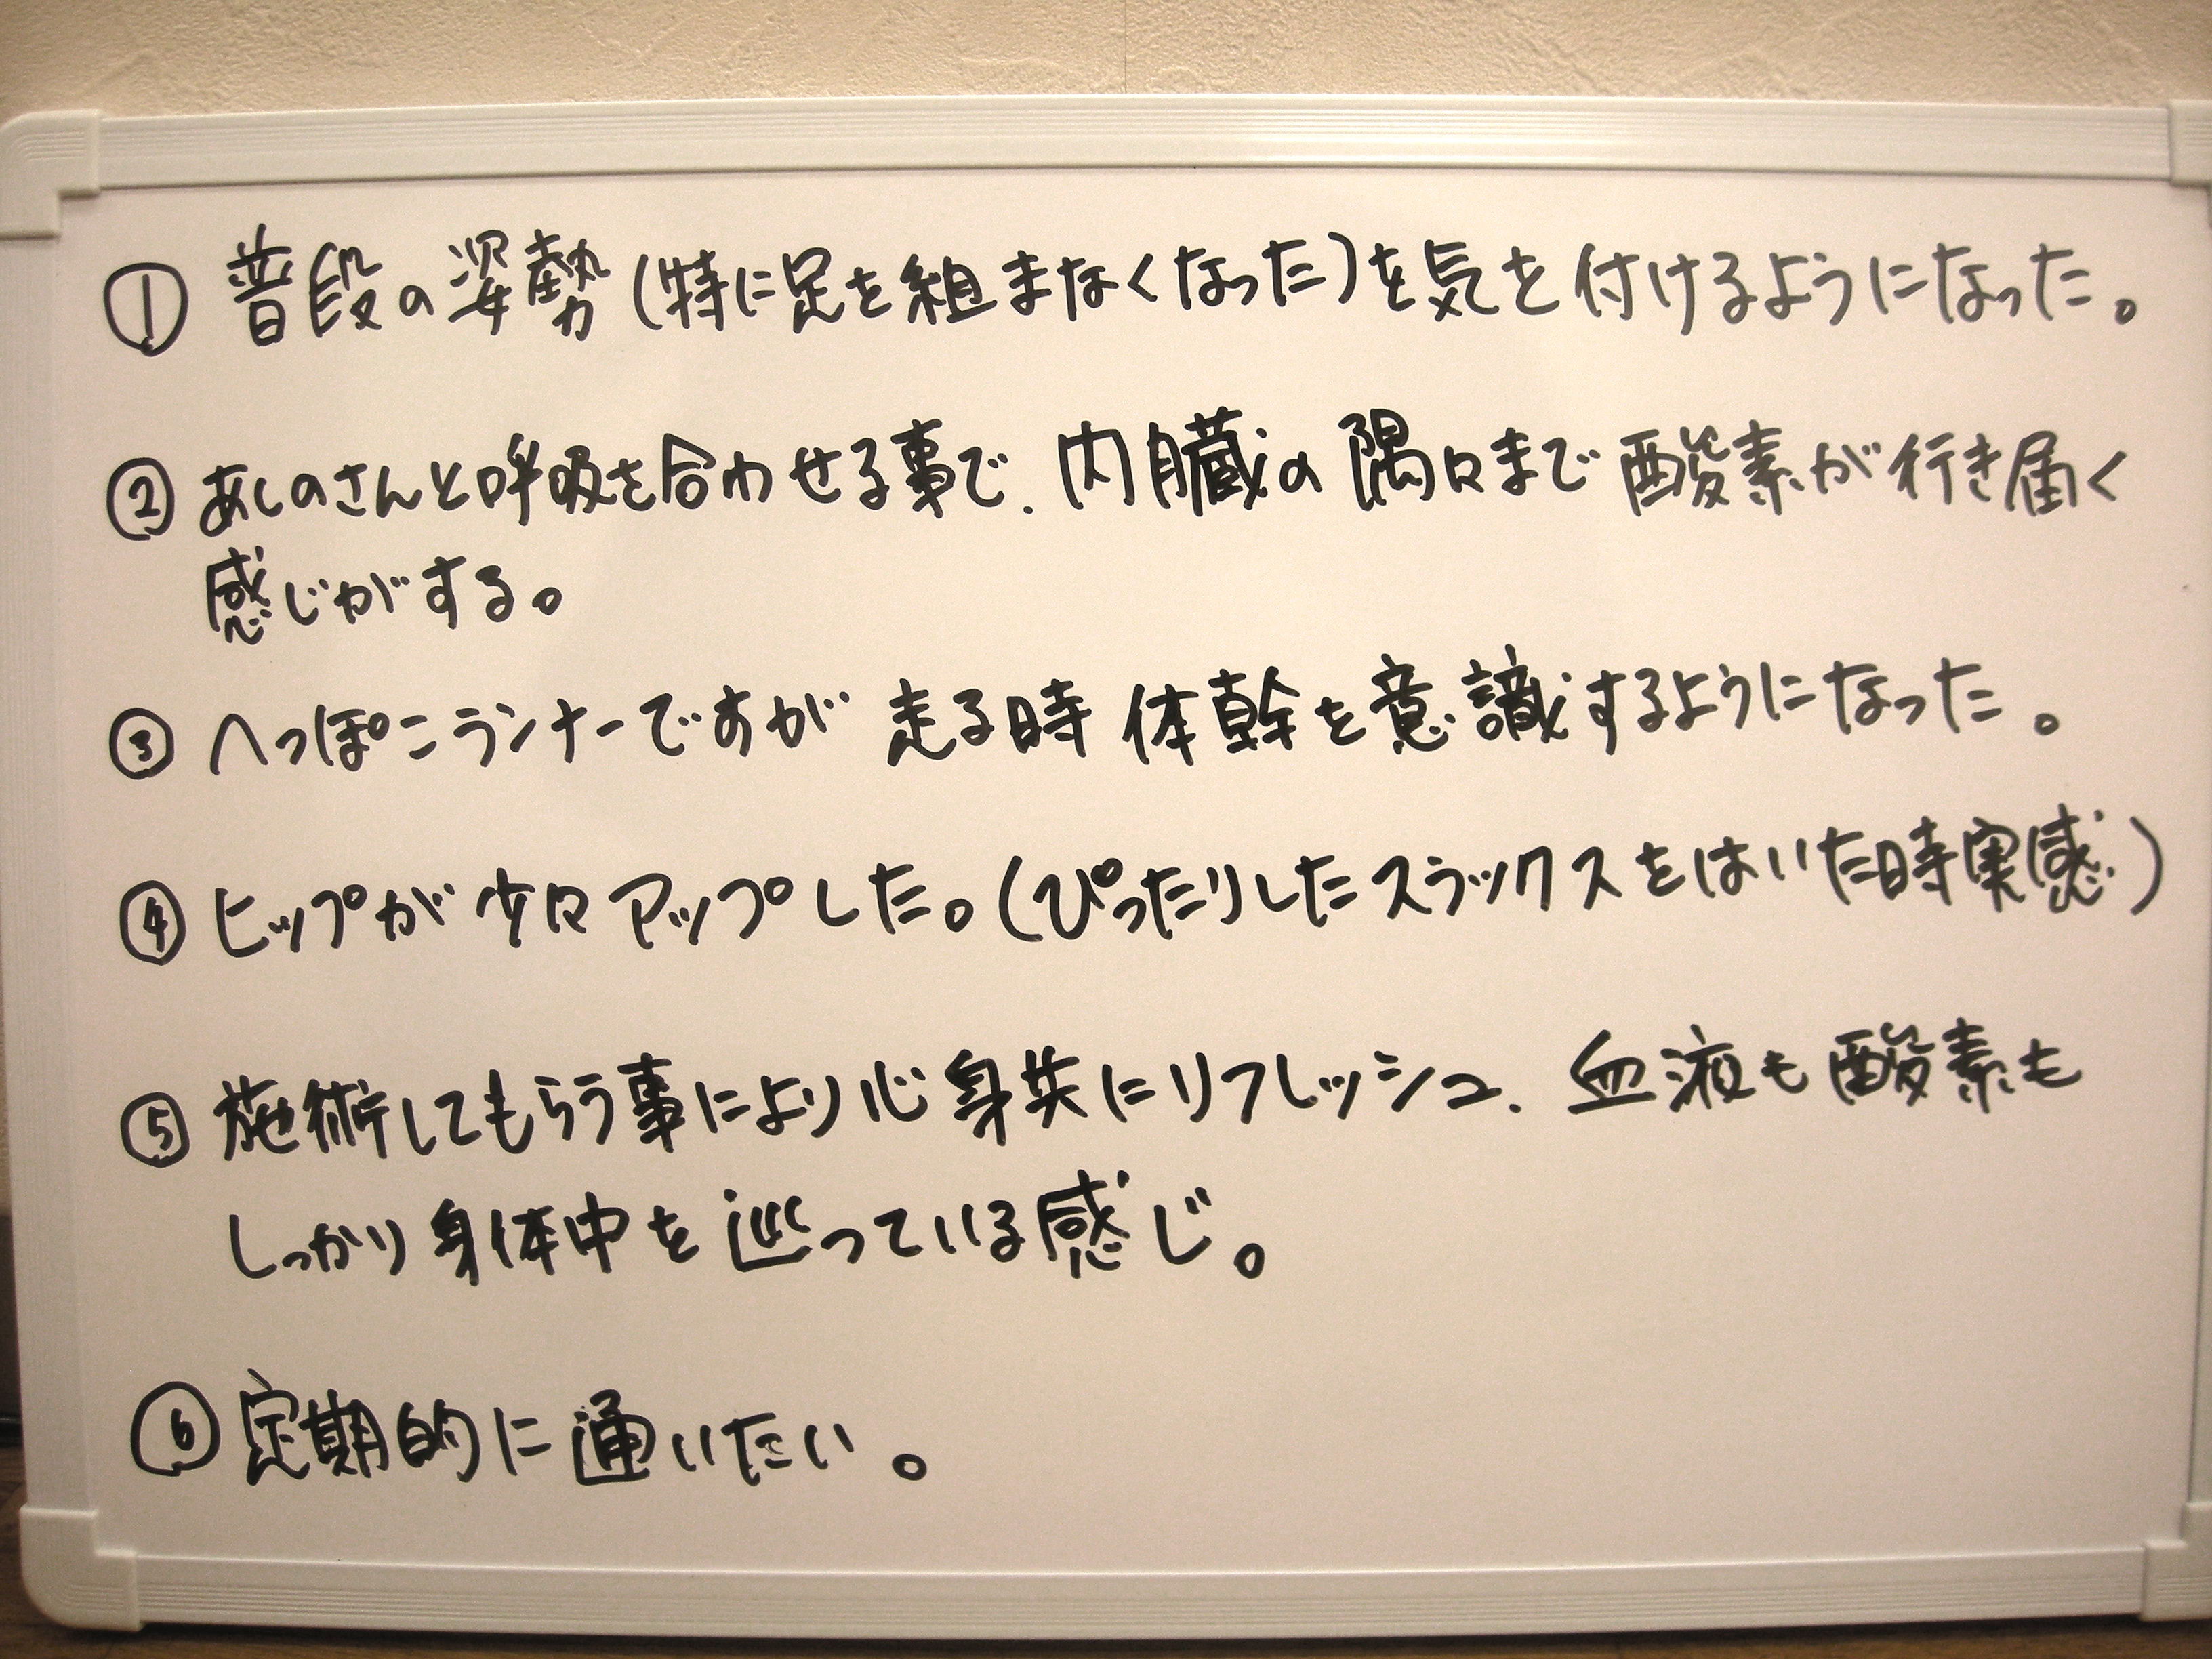 ① 普段の姿勢(特に足を組まなくなった)を気を付けるようになった。
② あしのさんと呼吸を合わせる事で、内臓の隅々まで酸素が行き届く
感じがする。
③ へっぽこランナーですが 走る時 体幹を意識するようになった。
④ ヒップが少々アップした。(ぴったりしたスラックスをはいた時実感)
⑤ 施術してもらう事により心身共にリフレッシュ、血液も酸素も
しっかり身体中を巡っている感じ。
⑥ 定期的に通いたい。